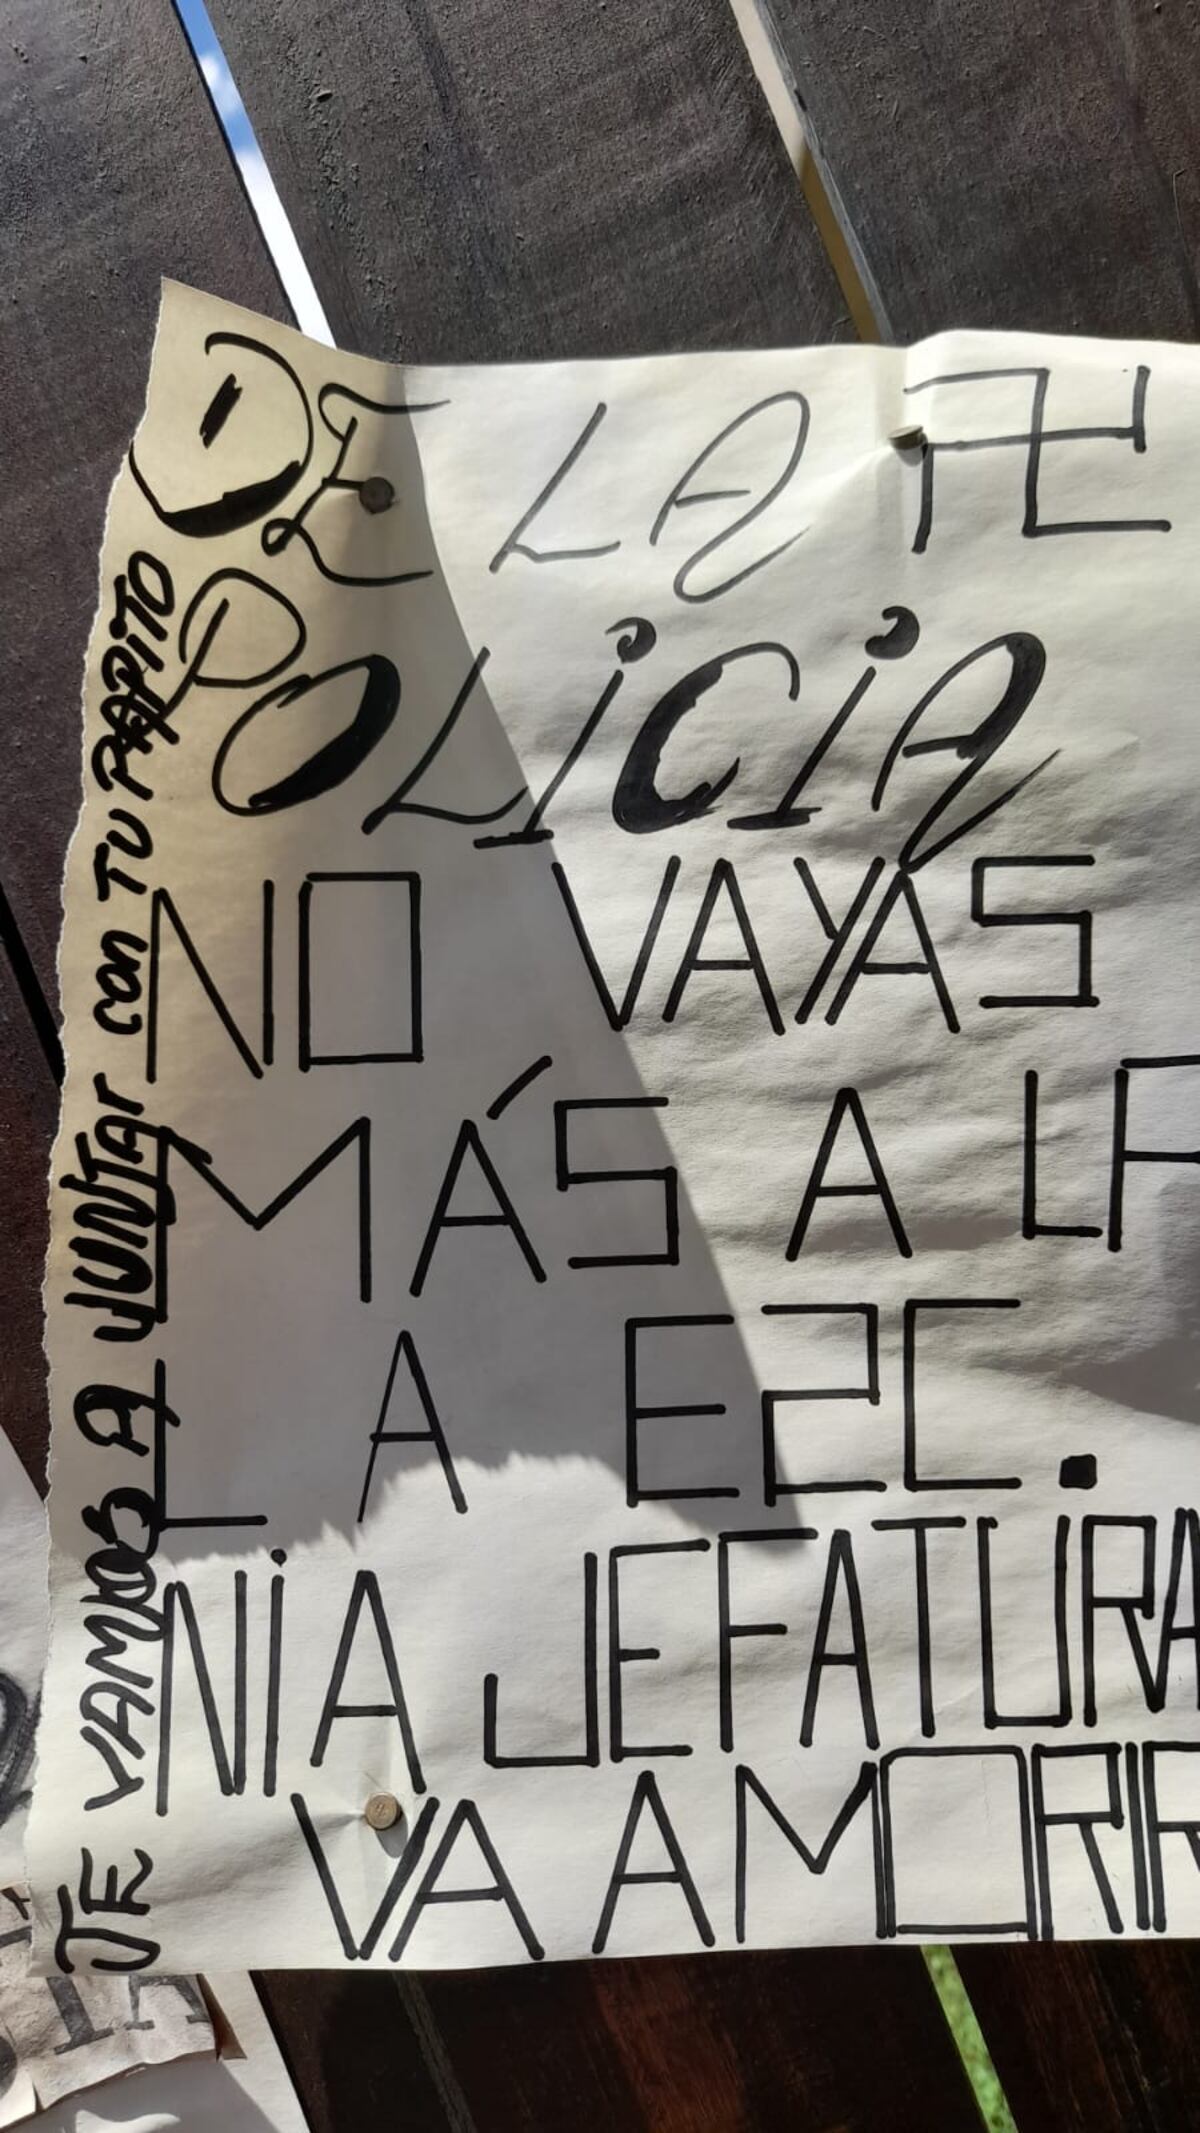 DE LA
POLiCiA
NO VAYAS
MÁS A LA
LA E2C.
Ni A JEFATURA
VA A MORIR
TE VAMOS A JUNTAr con TU PAPiTO